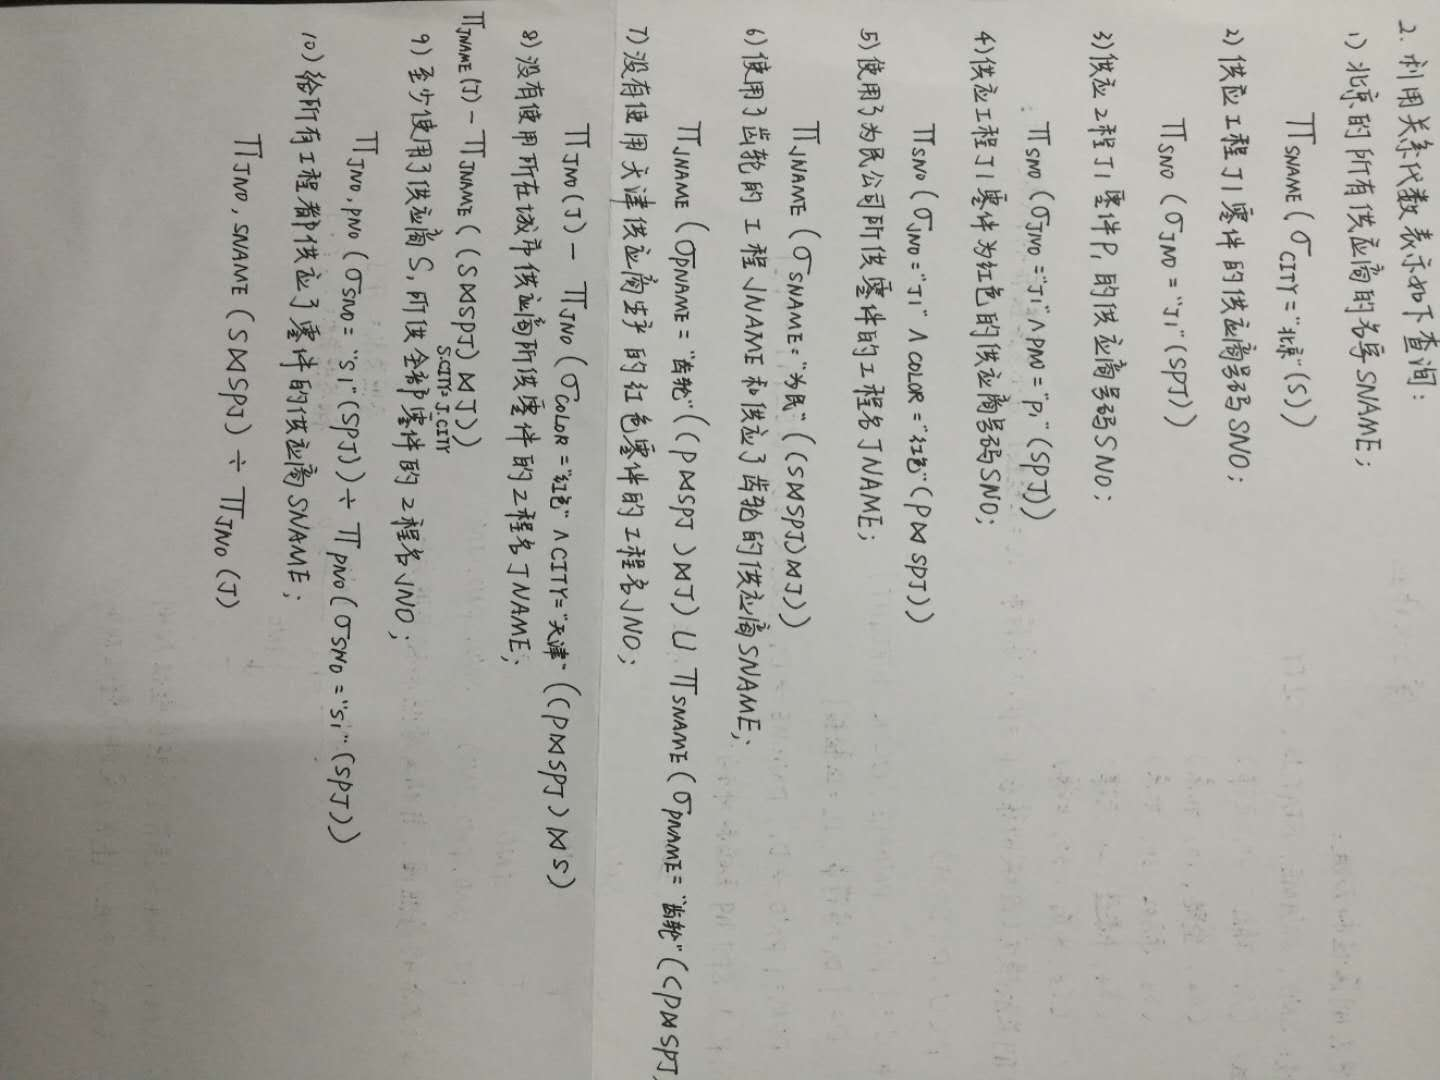 2. 利用关系代数表示如下查询:
1) 北京的所有供应商的名字SNAME;
∏SNAME(σCITY="北京"(S))
2) 供应工程J1零件的供应商号码SNO;
∏SNO(σJNO="J1"(SPJ))
3) 供应工程J1零件P1的供应商号码SNO;
∏SNO(σJNO="J1"∧PNO="P1"(SPJ))
4) 供应工程J1零件为红色的供应商号码SNO;
∏SNO(σJNO="J1"∧COLOR="红色"(P⋈SPJ))
5) 使用了为民公司所供零件的工程名JNAME;
∏JNAME(σSNAME="为民"((S⋈SPJ)⋈J))
6) 使用了齿轮的工程JNAME和供应了齿轮的供应商SNAME;
∏JNAME(σPNAME="齿轮"((P⋈SPJ)⋈J)∪∏SNAME(σPNAME="齿轮"((P⋈SPJ
7) 没有使用天津供应商生产的红色零件的工程名JNO;
∏JNO(J)-∏JNO(σCOLOR="红色"∧CITY="天津"((P⋈SPJ)⋈S)
8) 没有使用所在城市供应商所供零件的工程名JNAME;
∏JNAME(J)-∏JNAME((S⋈SPJ)⋈J))
S.CITY=J.CITY
9) 至少使用了供应商S1所供全部零件的工程名JNO;
∏JNO,PNO(σSNO="S1"(SPJ))÷∏PNO(σSNO="S1"(SPJ))
10) 给所有工程都供应了零件的供应商SNAME;
∏JNO,SNAME(S⋈SPJ)÷∏JNO(J)